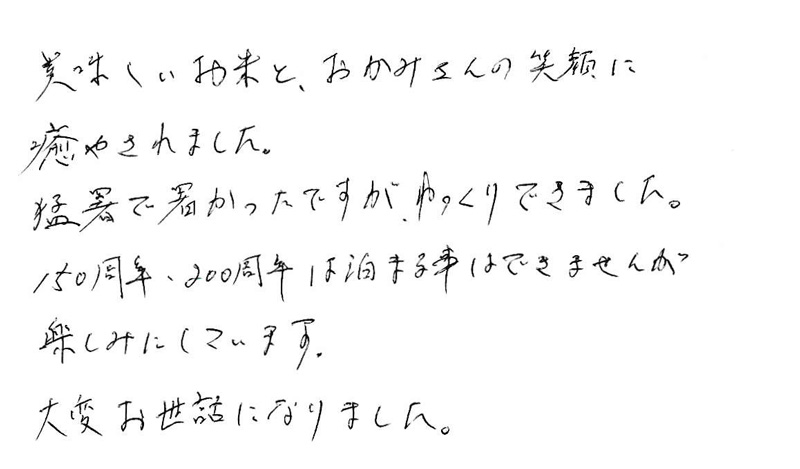 美味しいお米と、おかみさんの笑顔に
癒やされました。
猛暑で暑かったですが、ゆっくりできました。
150周年、200周年は泊まる事はできませんが
楽しみにしています。
大変お世話になりました。